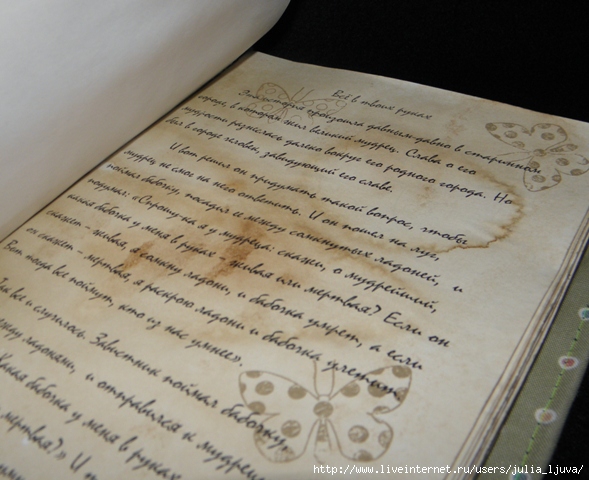 Всё в твоих руках
Эта история произошла давным-давно в старинном
городе, в котором жил великий мудрец. Слава о его
мудрости разнеслась далеко вокруг его родного города. Но
был в городе человек, завидующий его славе.
И вот решил он придумать такой вопрос, чтобы
мудрец не смог на него ответить. И он пошел на луг
поймал бабочку, посадил её между сомкнутых ладоней, и
подумал: «Спрошу-ка я у мудреца: скажи, о мудрейший,
какая бабочка у меня в руках - живая или мертвая? Если он
скажет - живая, я сомкну ладони, и бабочка умрет, а если
он скажет - мертвая, я раскрою ладони и бабочка улетит.
Вот тогда все поймут, кто из нас умнее».
Так все и случилось. Завистник поймал бабочку,
между ладонями, и отправился к мудрецу
Какая бабочка у меня в руках
мертвая?» И
http://www.liveinternet.ru/users/julia_ljuva/